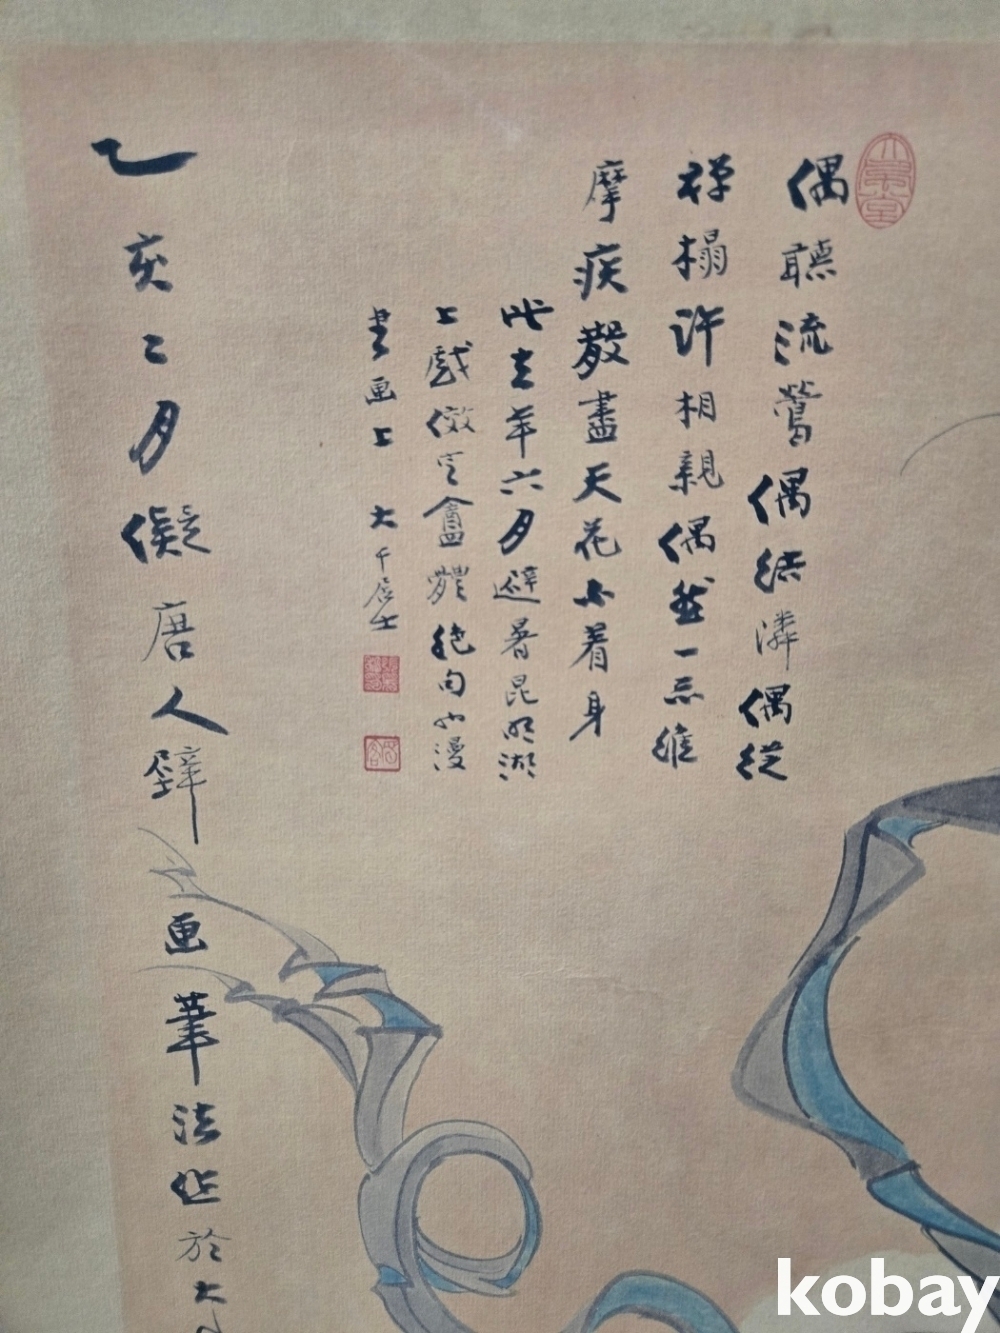 偶聽流鶯偶結憐偶從
禪榻許相親偶然一示維
摩疾散盡天花不着身
此去年六月避暑昆明湖
上戲倣定盦體絕句也漫
書畫上 大千居士
乙亥二月儗唐人壁畫筆法作於大
kobay